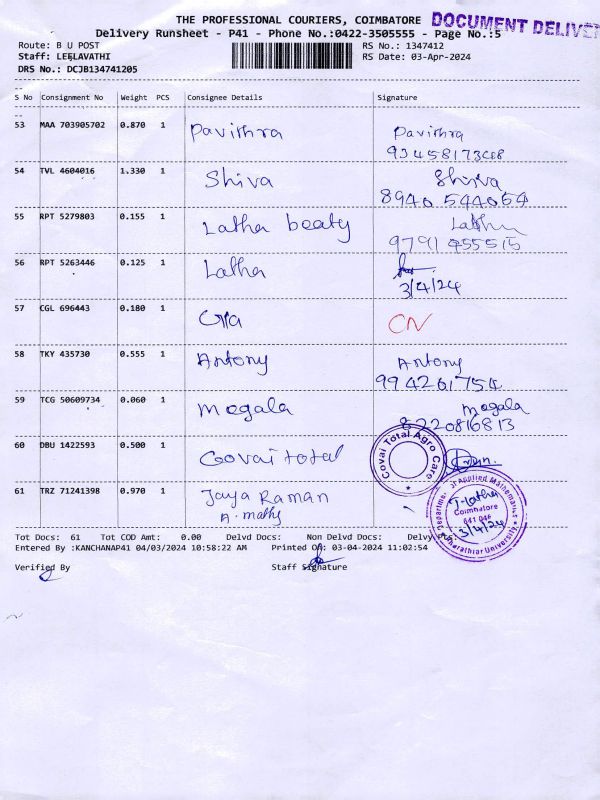 THE PROFESSIONAL COURIERS, COIMBATORE
DOCUMENT DELIVE
Delivery Runsheet - P41 - Phone No.:0422-3505555 - Page No.:5
Route: B U POST
RS No.: 1347412
Staff: LEELAVATHI
RS Date: 03-Apr-2024
DRS No.: DCJB134741205
S No Consignment No Weight PCS Consignee Details Signature
53 MAA 703905702 0.870 1 Pavithra Pavithra
54 TVL 4604016 1.330 1 Shiva Shiva
8940 544064
55 RPT 5279803 0.155 1 Latha beaty Latha
9791 455515
56 RPT 5263446 0.125 1 Latha
3/4/24
57 CGL 696443 0.180 1 CN
58 TKY 435730 0.555 1 Antony Antony
994261754
59 TCG 50609734 0.060 1 Mogala Mogala
8220816813
60 DBU 1422593 0.500 1 Covai total
Covai Total Agro Care
61 TRZ 71241398 0.970 1 Jaya Raman
A. mathy
Department of Applied Mathematics
T. Latha
Coimbatore
641 046
3/4/24
Bharathiar University
Tot Docs: 61 Tot COD Amt: 0.00 Delvd Docs: Non Delvd Docs: Delvy Pts:
Entered By :KANCHANAP41 04/03/2024 10:58:22 AM Printed On: 03-04-2024 11:02:54
Verified By Staff Signature